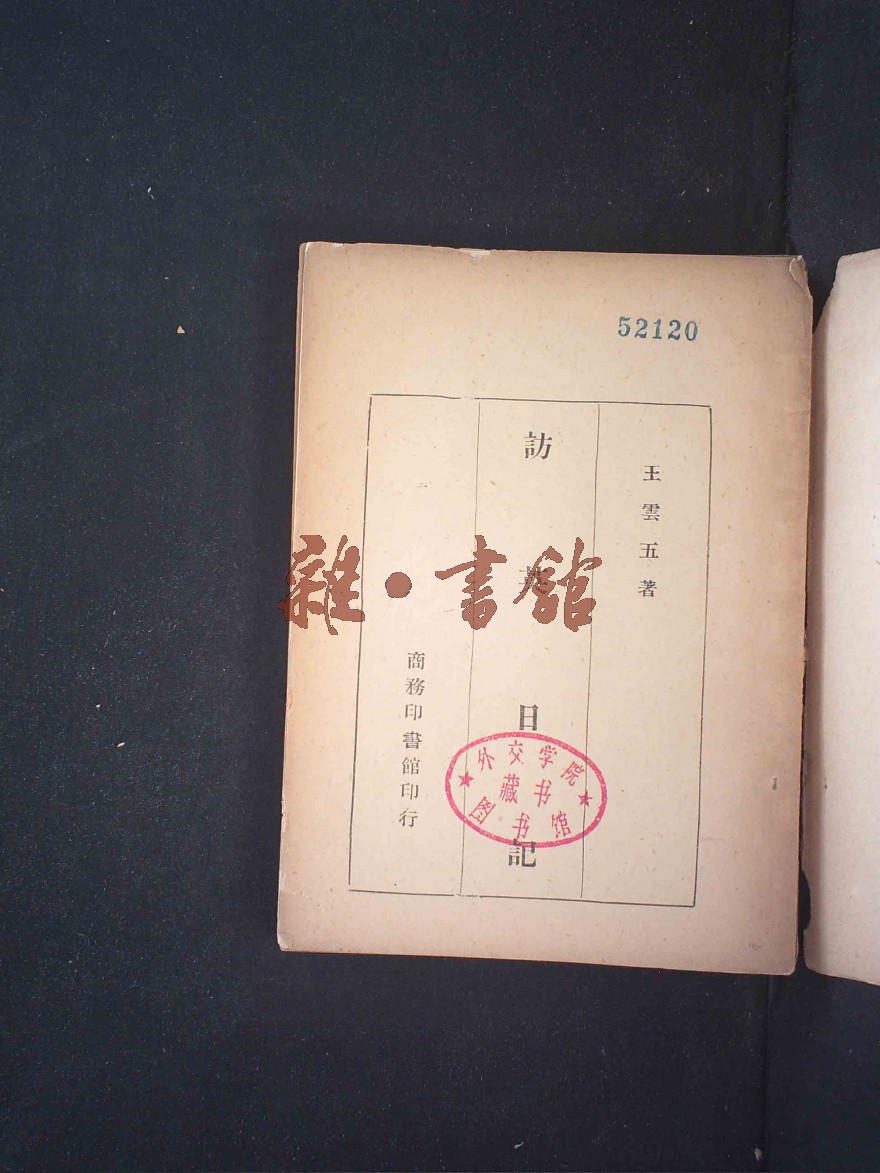 52120
王雲五著
訪英日記
商務印書館印行
外交学院
藏书
图书馆
雜·書館